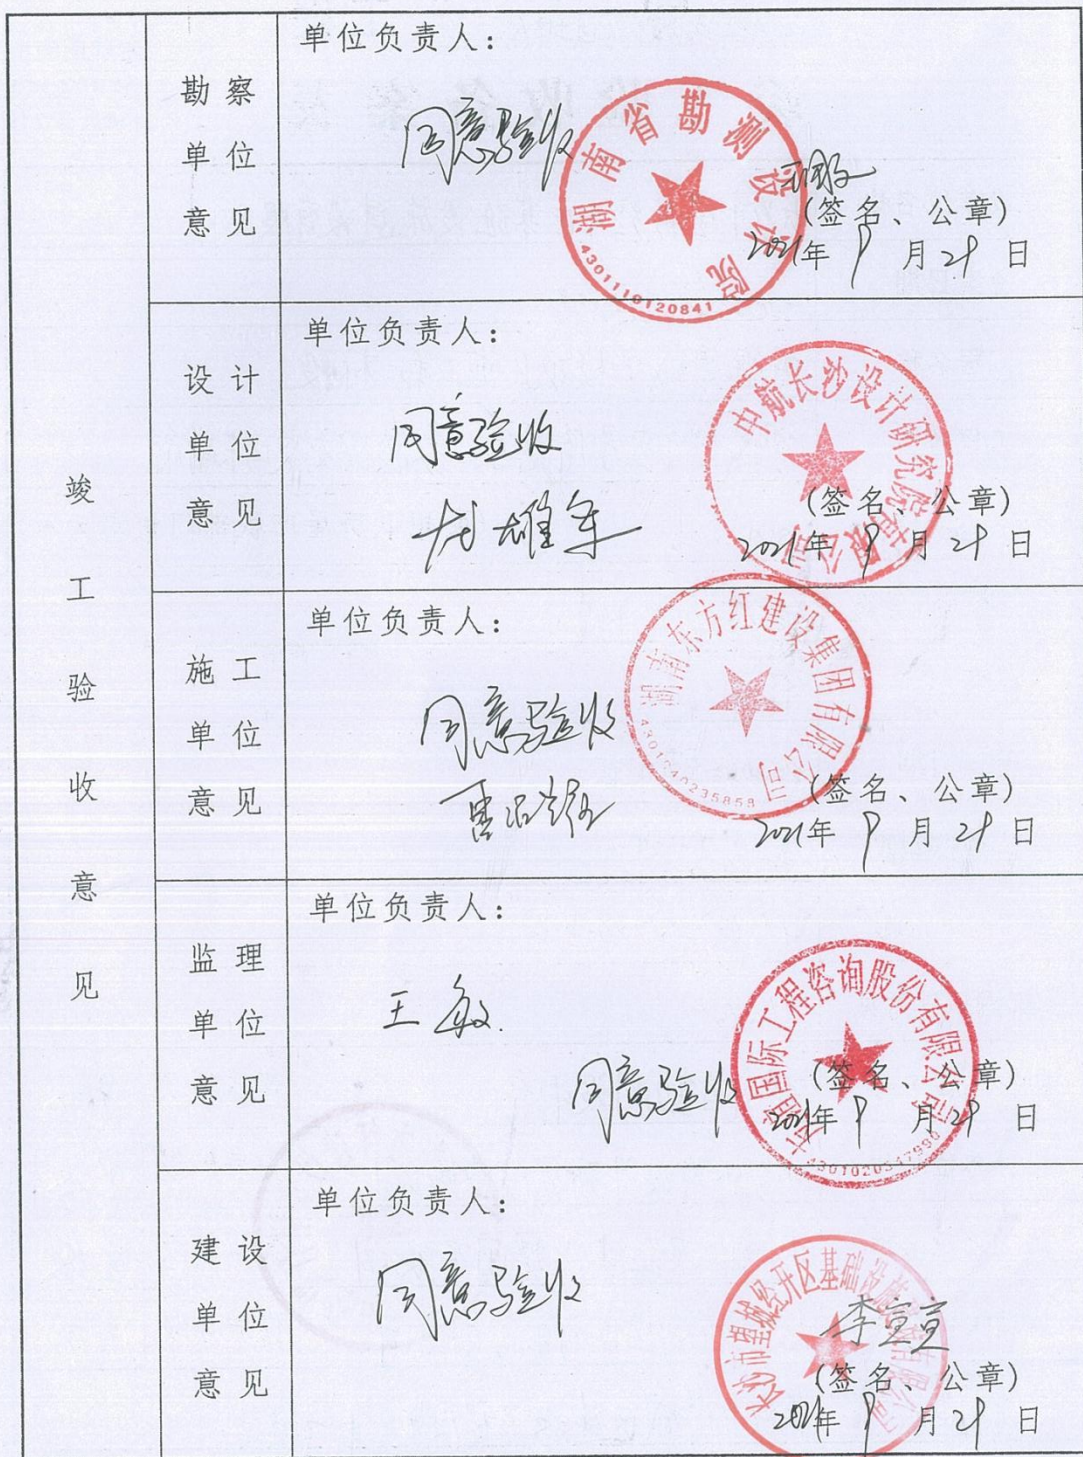 竣工验收意见
勘察单位意见
单位负责人：
同意验收
湖南省勘测设计院
4301110120841
(签名、公章)
2021年9月29日
设计单位意见
单位负责人：
同意验收
龙雄军
中航长沙设计研究院有限公司
(签名、公章)
2021年9月29日
施工单位意见
单位负责人：
同意验收
湖南东方红建设集团有限公司
(签名、公章)
2021年9月29日
监理单位意见
单位负责人：
王敏
同意验收
国际工程咨询股份有限公司
(签名、公章)
2021年9月29日
建设单位意见
单位负责人：
同意验收
长沙市望城经开区基础设施
李宣宣
(签名、公章)
2021年9月29日